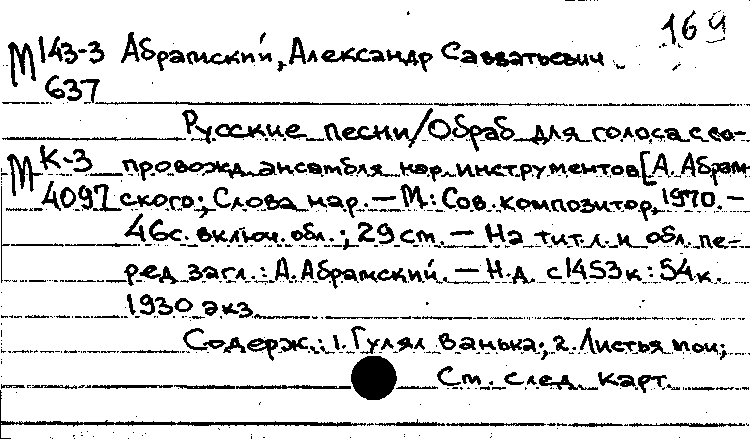 169
М 143-3 Абрамский, Александр Савватьевич
637
Русские песни/Обраб для голоса с со-
М К-3 провожд. ансамбля нар. инструментов [А. Абрам-
4097 ского; Слова нар. — М.: Сов. композитор, 1970. —
46с. включ. обл.; 29 ст. — На тит. л. и обл. пе-
ред загл.: А. Абрамский. — Н.д. с1453к: 54к.
1930 экз.
Содерж.: 1. Гулял Ванька; 2. Листья мои;
См. след. карт.